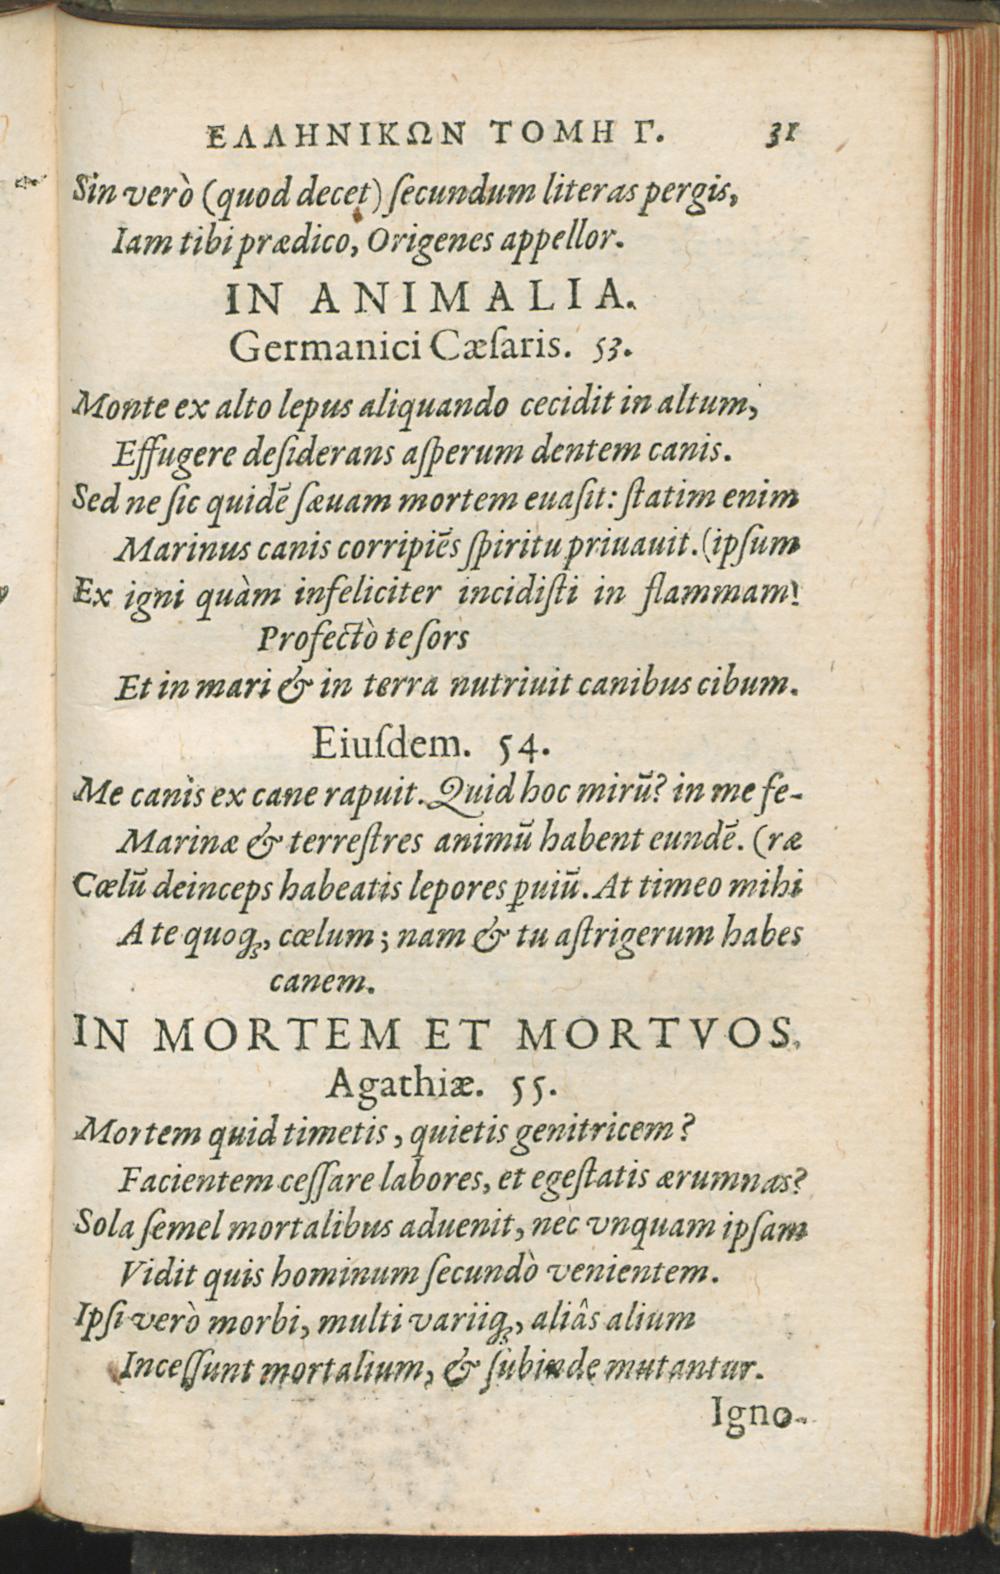 ΕΛΛΗΝΙΚΩΝ ΤΟΜΗ Γ. 31
Sin verò (quod decet) ſecundum literas pergis,
Iam tibi prædico, Origenes appellor.
IN ANIMALIA.
Germanici Cæſaris. 53.
Monte ex alto lepus aliquando cecidit in altum,
Effugere deſiderans aſperum dentem canis.
Sed ne ſic quidẽ ſæuam mortem euaſit: ſtatim enim
Marinus canis corripiẽs ſpiritu priuauit. (ipſum
Ex igni quàm infeliciter incidiſti in flammam!
Profectò te ſors
Et in mari & in terra nutriuit canibus cibum.
Eiuſdem. 54.
Me canis ex cane rapuit. Quid hoc mirũ? in me fe-
Marinæ & terreſtres animũ habent eundẽ. (ræ
Cœlũ deinceps habeatis lepores ꝑuiũ. At timeo mihi
A te quoq;, cœlum; nam & tu aſtrigerum habes
canem.
IN MORTEM ET MORTVOS.
Agathiæ. 55.
Mortem quid timetis, quietis genitricem?
Facientem ceſſare labores, et egeſtatis ærumnas?
Sola ſemel mortalibus aduenit, nec vnquam ipſam
Vidit quis hominum ſecundò venientem.
Ipſi verò morbi, multi variiq;, aliâs alium
Inceſſunt mortalium, & ſubinde mutantur.
Igno-